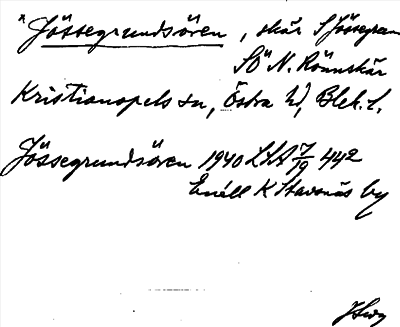 *Jössegrundsören, skär S Jössegrun
SÖ N. Rönnskär
Kristianopels sn, Östra hd, Blek. l.
Jössegrundsören 1940 LSA 7/19 442
Enéll K Stavsnäs by